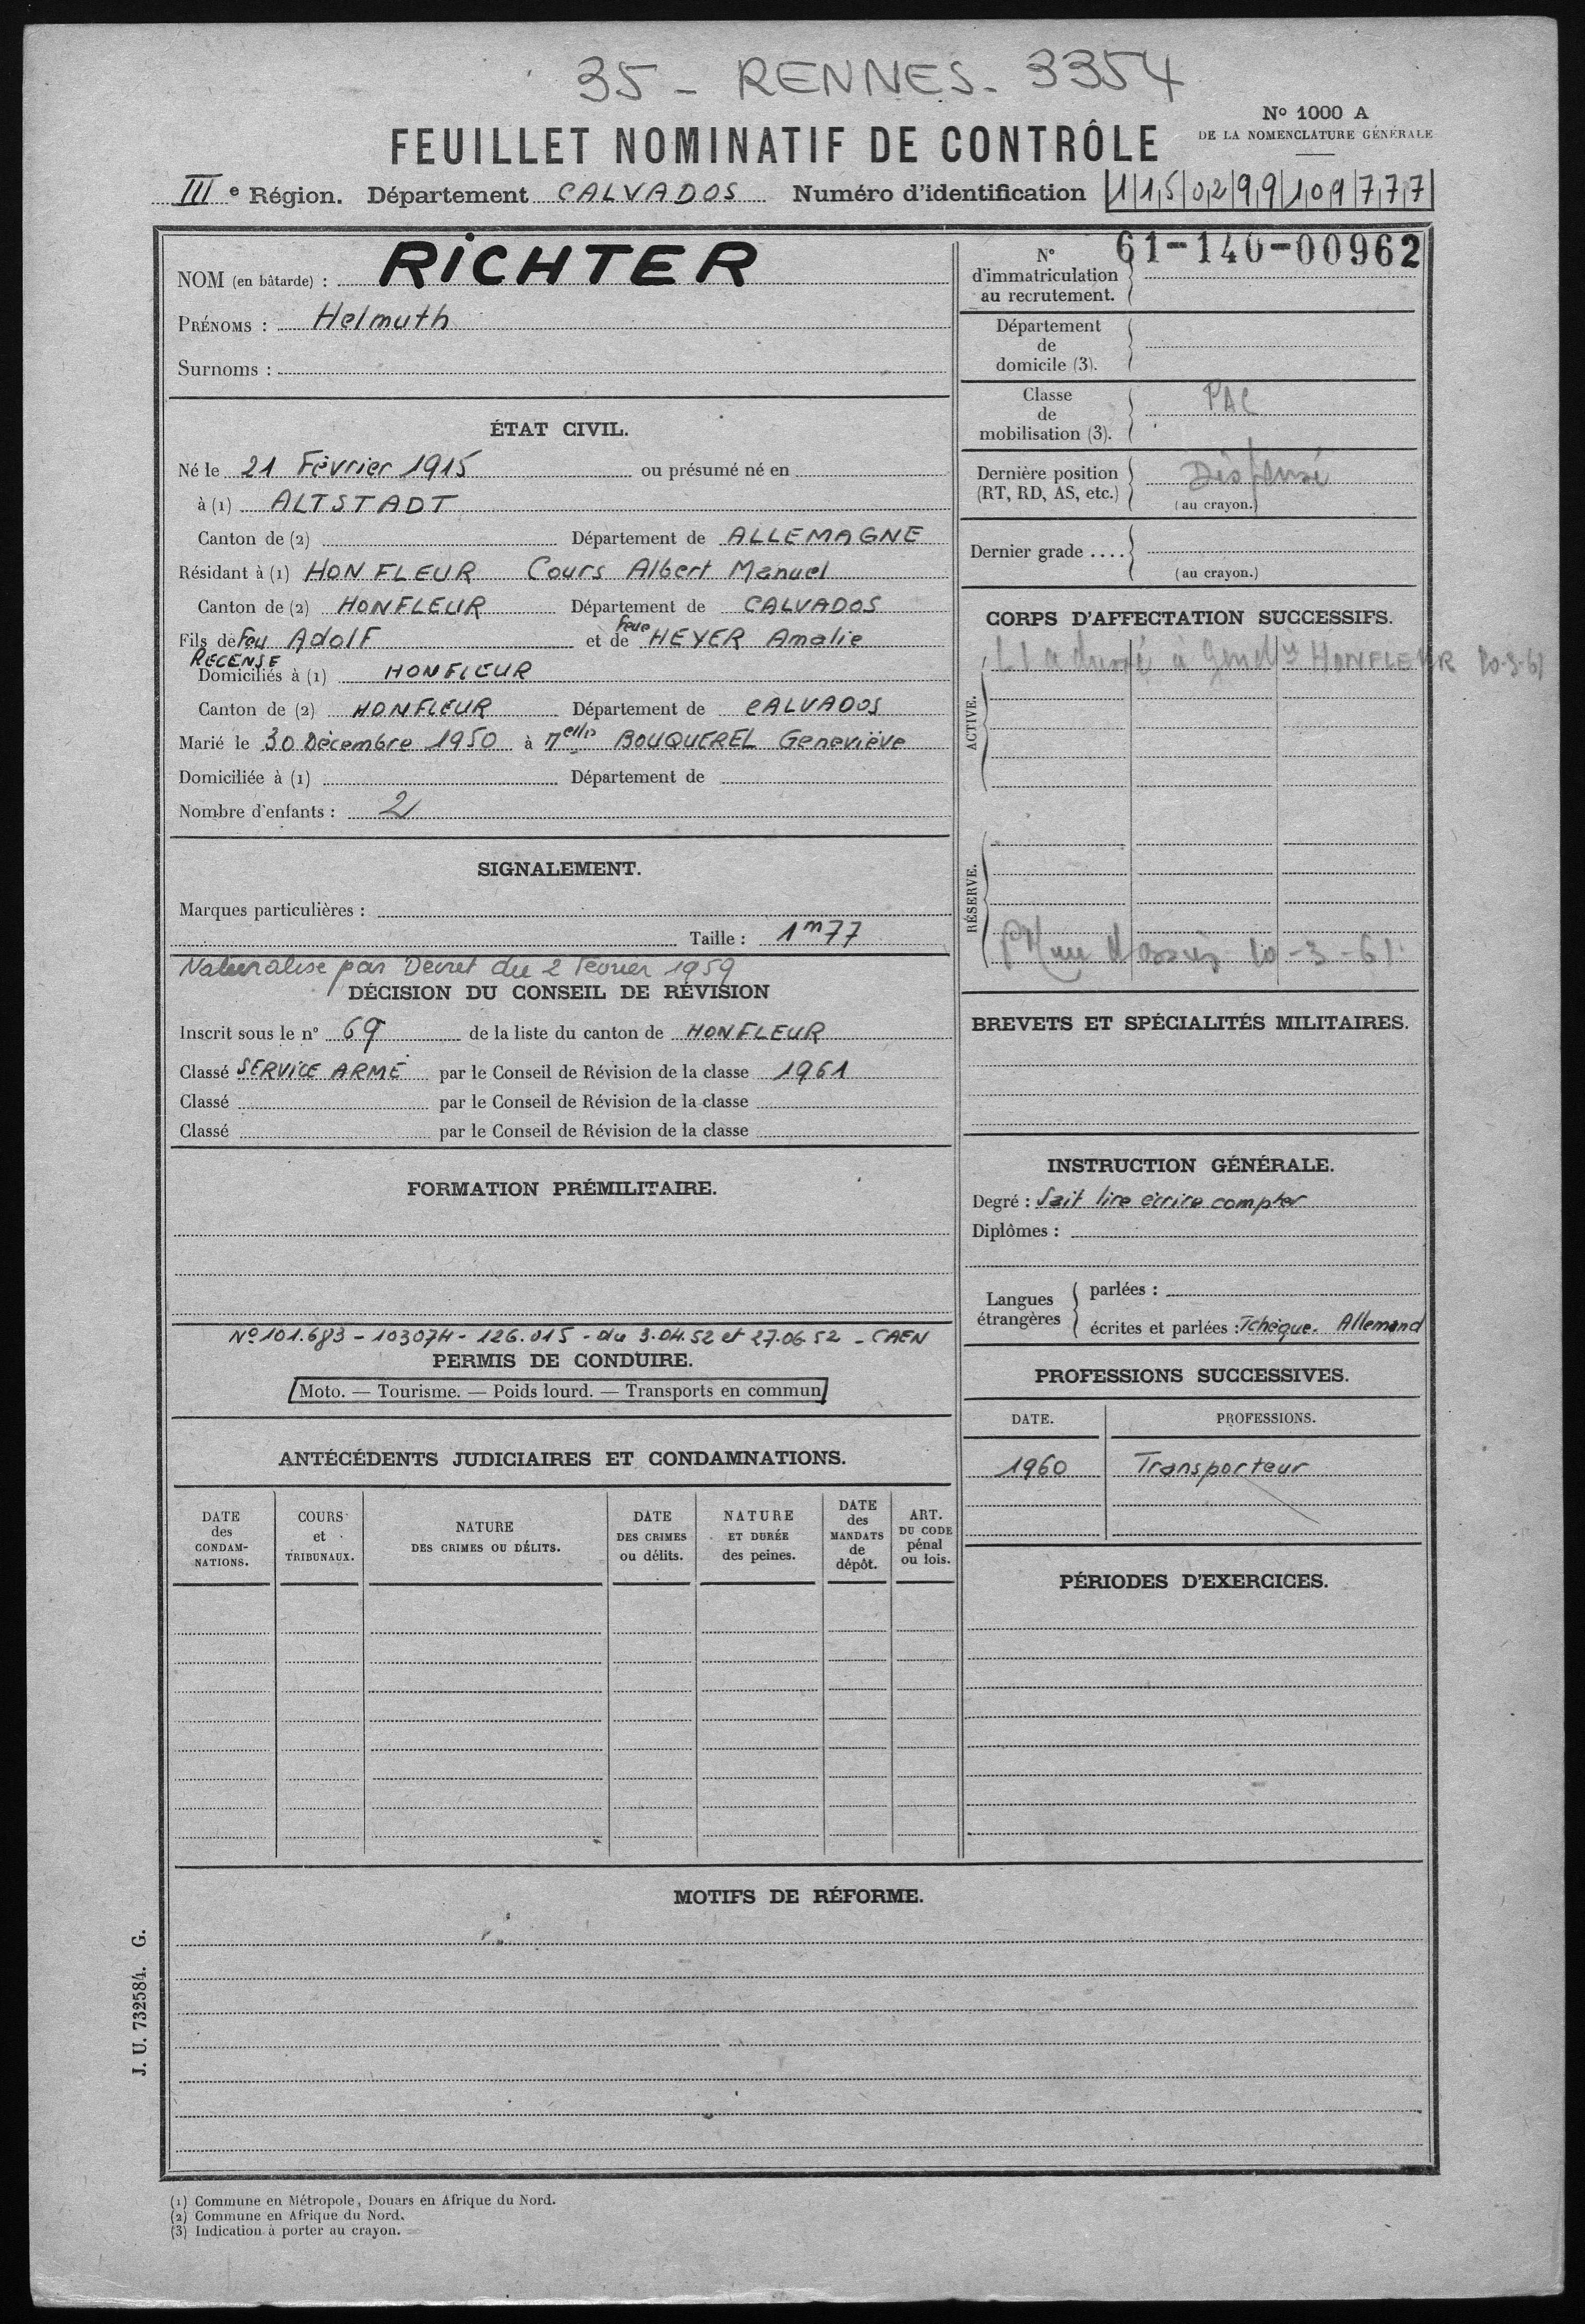 35 - RENNES - 3354
N° 1000 A
DE LA NOMENCLATURE GÉNÉRALE
FEUILLET NOMINATIF DE CONTRÔLE
III e Région. Département CALVADOS Numéro d'identification 1 15 02 99 109 777
NOM (en bâtarde) : RiCHTER
PRÉNOMS : Helmuth
Surnoms :
ÉTAT CIVIL.
Né le 21 Février 1915 ou présumé né en
à (1) ALTSTADT
Canton de (2) Département de ALLEMAGNE
Résidant à (1) HONFLEUR Cours Albert Manuel
Canton de (2) HONFLEUR Département de CALVADOS
Fils de feu Adolf et de feue HEYER Amalie
RECENSE
Domiciliés à (1) HONFLEUR
Canton de (2) HONFLEUR Département de CALVADOS
Marié le 30 Décembre 1950 à Melle BOUQUEREL Geneviève
Domiciliée à (1) Département de
Nombre d'enfants : 2
SIGNALEMENT.
Marques particulières :
Taille : 1m77
Naturalise par Decret du 2 Fevrier 1959
DÉCISION DU CONSEIL DE RÉVISION
Inscrit sous le n° 69 de la liste du canton de HONFLEUR
Classé SERVICE ARME par le Conseil de Révision de la classe 1961
Classé par le Conseil de Révision de la classe
Classé par le Conseil de Révision de la classe
FORMATION PRÉMILITAIRE.
N° 101.683 - 103074 - 126.015 - du 3.04.52 et 27.06.52 - CAEN
PERMIS DE CONDUIRE.
Moto. — Tourisme. — Poids lourd. — Transports en commun
ANTÉCÉDENTS JUDICIAIRES ET CONDAMNATIONS.
DATE des CONDAM-NATIONS.
COURS et TRIBUNAUX.
NATURE DES CRIMES OU DÉLITS.
DATE DES CRIMES ou délits.
NATURE ET DURÉE des peines.
DATE des MANDATS de dépôt.
ART. DU CODE pénal ou lois.
N° d'immatriculation au recrutement. 61-140-00962
Département de domicile (3).
Classe de mobilisation (3). PAC
Dernière position (RT, RD, AS, etc.) Dispensé
(au crayon.)
Dernier grade ....
(au crayon.)
CORPS D'AFFECTATION SUCCESSIFS.
ACTIVE.
à HONFLEUR 20-3-61
RÉSERVE.
10-3-61
BREVETS ET SPÉCIALITÉS MILITAIRES.
INSTRUCTION GÉNÉRALE.
Degré : Sait lire écrire compter
Diplômes :
Langues étrangères
parlées :
écrites et parlées : Tchèque. Allemand
PROFESSIONS SUCCESSIVES.
DATE. PROFESSIONS.
1960 Transporteur
PÉRIODES D'EXERCICES.
MOTIFS DE RÉFORME.
J. U. 732584. G.
(1) Commune en Métropole, Douars en Afrique du Nord.
(2) Commune en Afrique du Nord.
(3) Indication à porter au crayon.